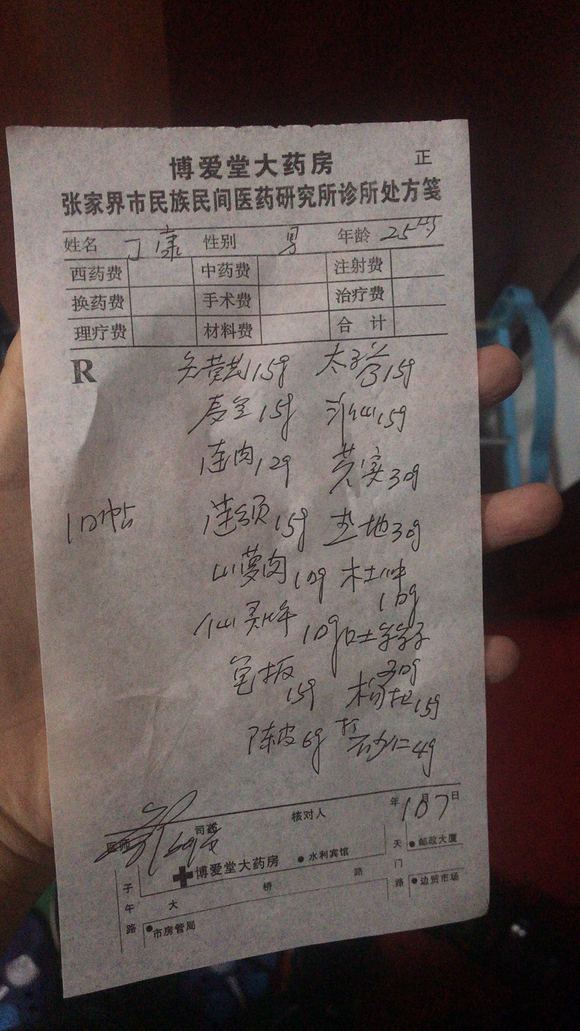 博爱堂大药房 正
张家界市民族民间医药研究所诊所处方笺
姓名 丁康 性别 男 年龄 25岁
西药费 中药费 注射费
换药费 手术费 治疗费
理疗费 材料费 合计
R
15g 太子参15g
15g 15g
连肉12g 芡实30g
10帖 连须15g 生地30g
山萸肉10g 杜仲10g
仙灵脾10g 30g
龟板15g 15g
陈皮6g 砂仁4g
医师 司药 核对人 年 月 日
10 7
博爱堂大药房 水利宾馆 邮政大厦
子午路 大桥路 天门路 边贸市场
市房管局